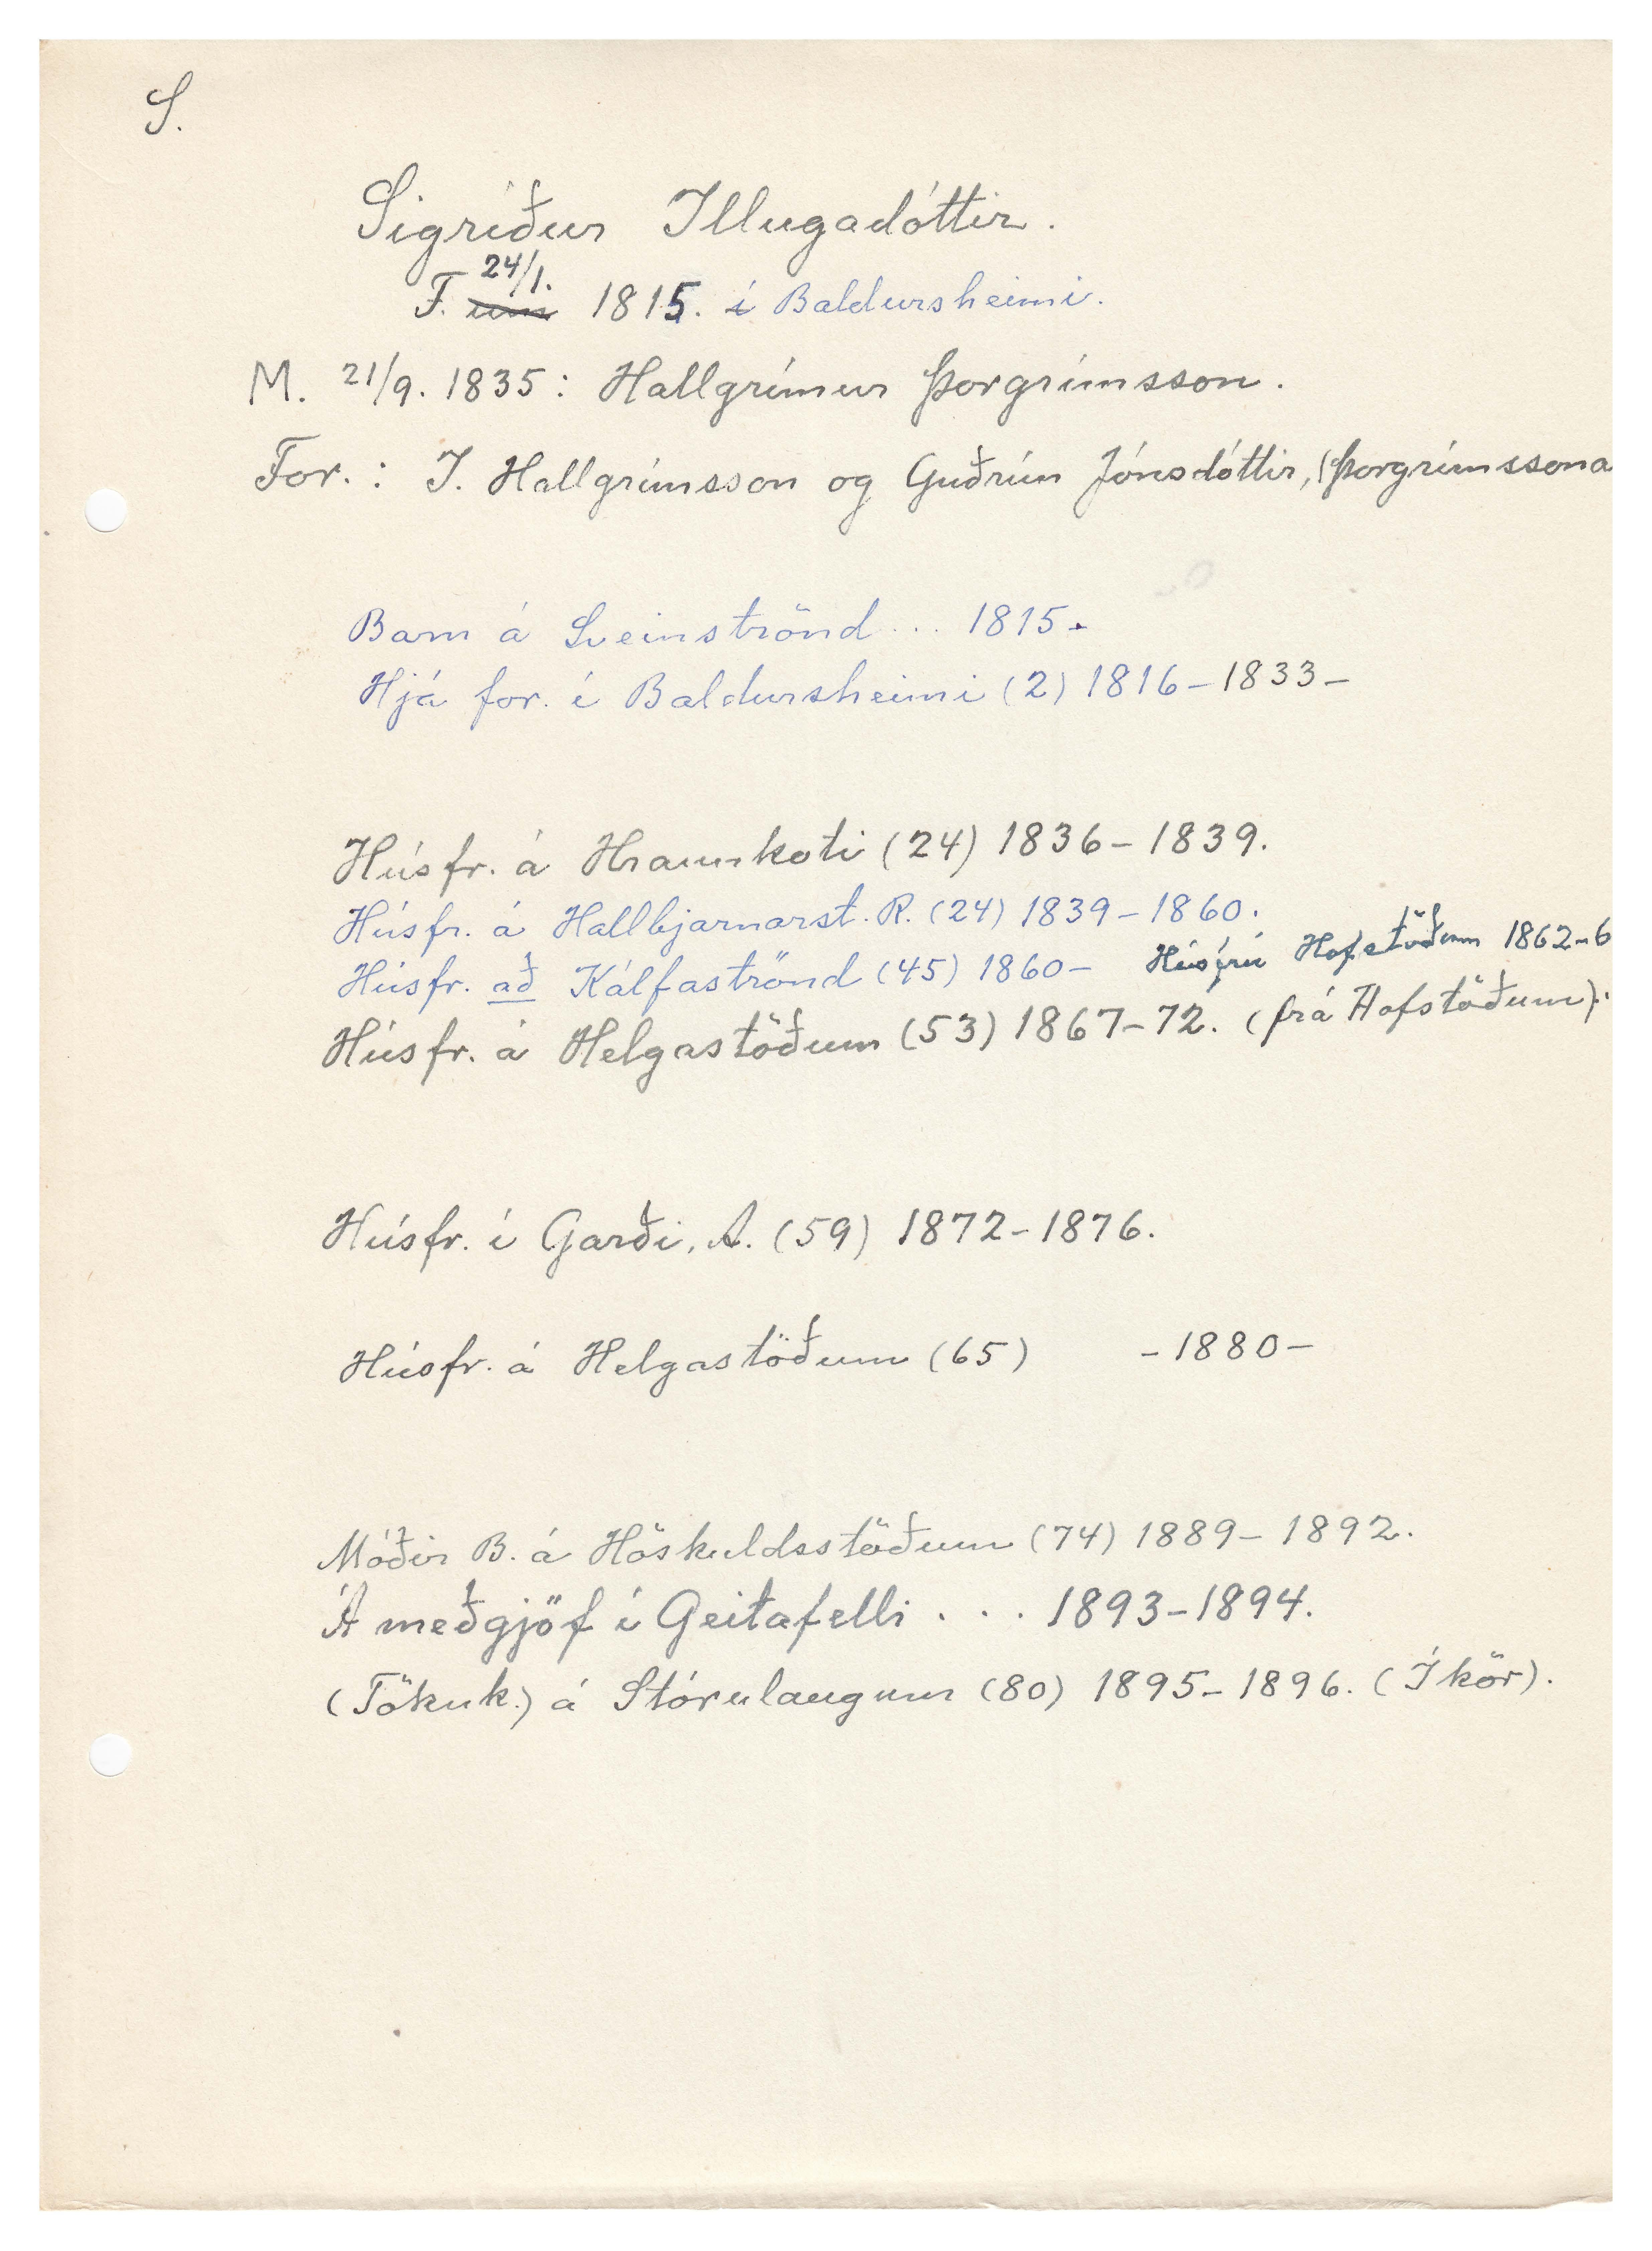 S.
Sigríður Illugadóttir.
24/1.
F. um 1815. í Baldursheimi.
M. 21/9. 1835: Hallgrímur Þorgrímsson.
For.: I. Hallgrímsson og Guðrún Jónsdóttir, (Þorgrímssona
Barn á Sveinströnd ... 1815-
Hjá for. í Baldursheimi (2) 1816-1833-
Húsfr. á Hraunkoti (24) 1836-1839.
Húsfr. á Hallbjarnarst. R. (24) 1839-1860.
Húsfr. að Kálfaströnd (45) 1860- Húsfrú Hofstöðum 1862-6
Húsfr. á Helgastöðum (53) 1867-72. (frá Hofstöðum).
Húsfr. í Garði, A. (59) 1872-1876.
Húsfr. á Helgastöðum (65) -1880-
Móðir B. á Höskuldsstöðum (74) 1889-1892.
Á meðgjöf í Geitafelli ... 1893-1894.
(Tökuk.) á Stórulaugum (80) 1895-1896. (Í kör).